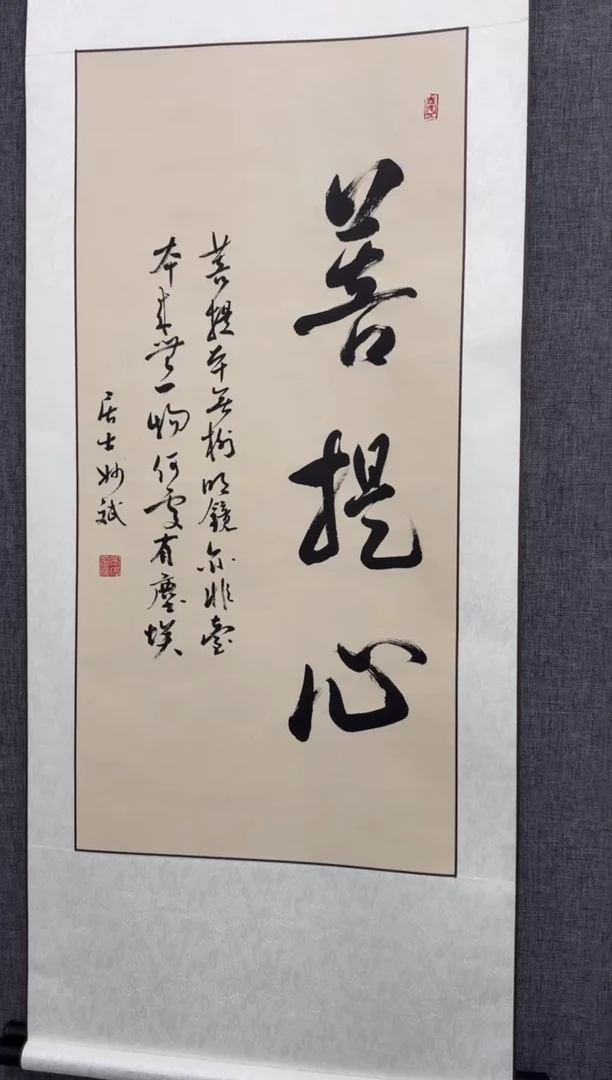 菩提心
菩提本无树明镜亦非臺
本来無一物何處有塵埃
居士妙斌